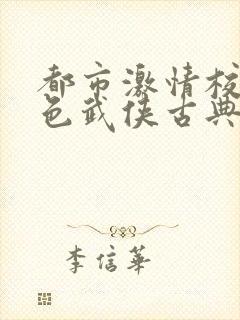 都市激情校
色武侠古典
李信華